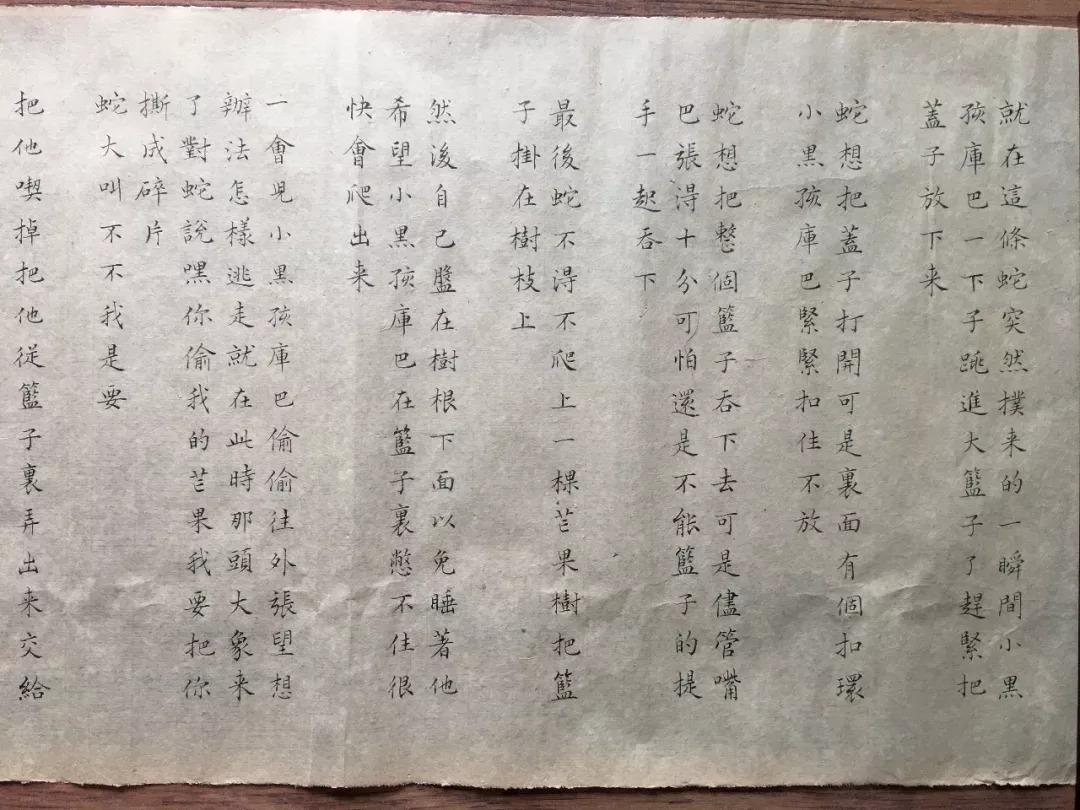 就在這條蛇突然撲来的一瞬間小黒
孩庫巴一下子跳進大籃子了趕緊把
蓋子放下来
蛇想把蓋子打開可是裏面有個扣環
小黒孩庫巴緊緊扣住不放
蛇想把整個籃子吞下去可是儘管嘴
巴張淂十分可怕還是不能籃子的提
手一起吞下
最後蛇不淂不爬上一棵芒果樹把籃
子掛在樹枝上
然後自己盤在樹根下面以免睡著他
希望小黒孩庫巴在籃子裏憋不住很
快會爬出来
一會児小黒孩庫巴偷偷往外張望想
辦法怎樣逃走就在此時那頭大象来
了對蛇説嘿你偷我的芒果我要把你
撕成碎片
蛇大叫不不我是要
把他喫掉把他従籃子裏弄出来交給